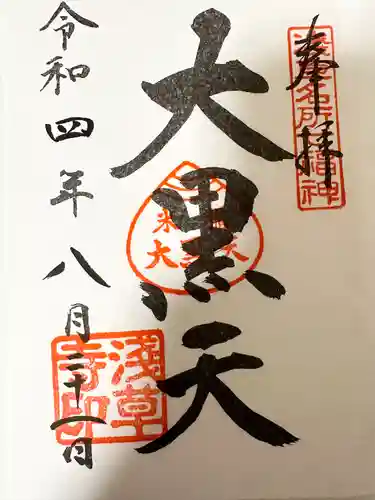 奉拝
浅草名所福神
大黒天
令和四年八月二十一日
浅草寺印